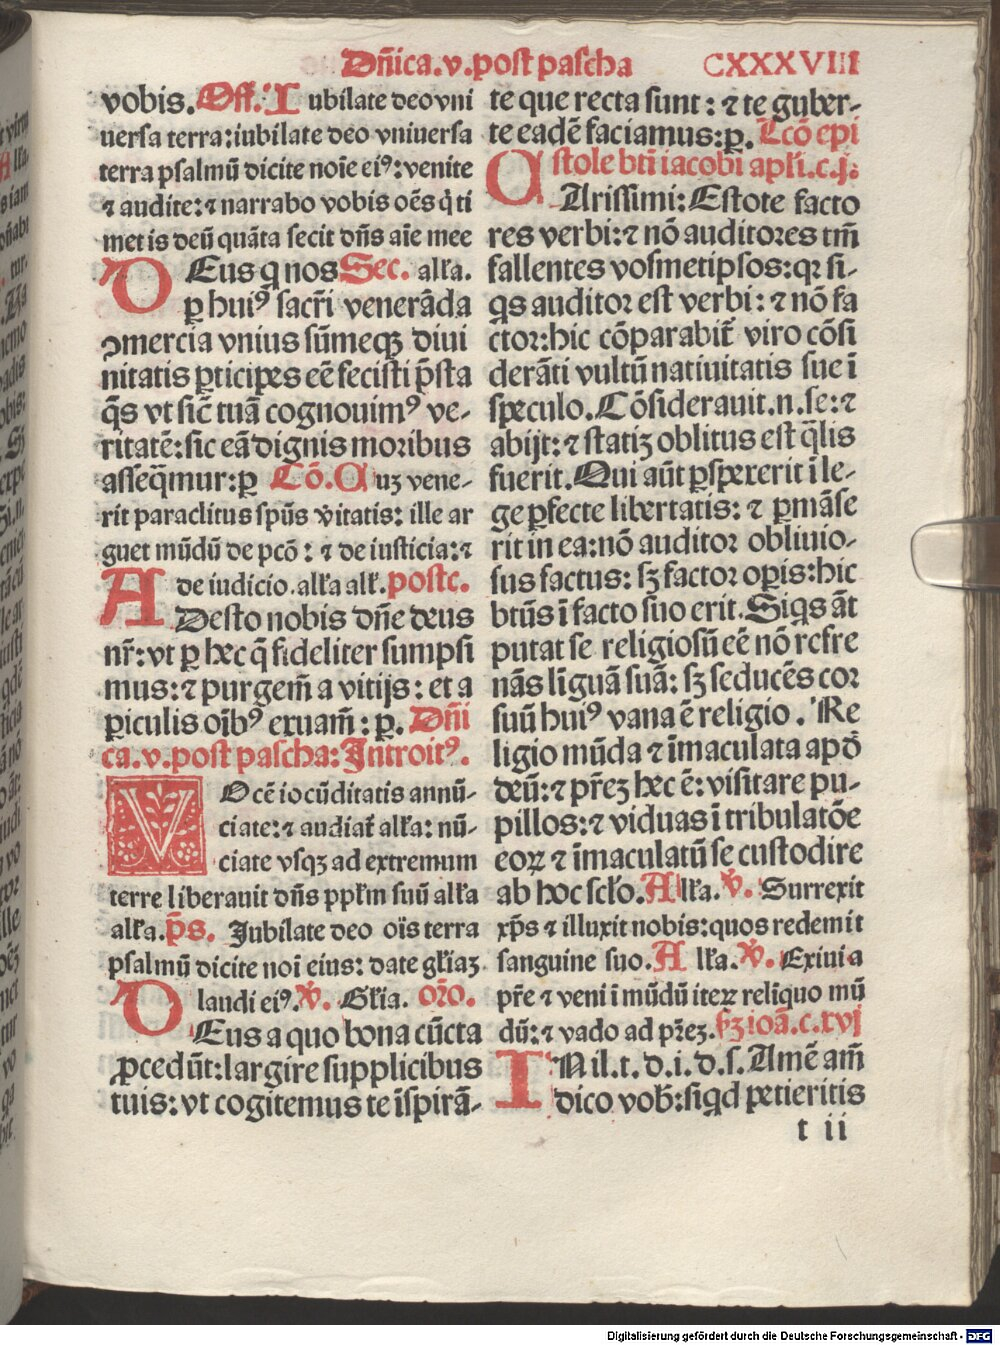 Dñica.v.post pascha CXXXVIII
vobis. Off. Iubilate deo vni
uersa terra: iubilate deo vniuersa
terra psalmū dicite noīe eiꝰ: venite
⁊ audite: ⁊ narrabo vobis oēs q̇ ti
metis deū quāta fecit dñs aīe mee
DEus q nos Sec. alľa.
ꝑ huiꝰ sacři venerāda
ꝯmercia vnius sūmeqꝫ diui
nitatis ꝑticipes eē fecisti p̄sta
q̄s vt sič tuā cognouimꝰ ve-
ritatē: sic eā dignis moribus
asseq̄mur: ꝑ Cō. Cuꝫ vene-
rit paraclitus spūs v̇itatis: ille ar
guet mūdū de pcō: ⁊ de iusticia: ⁊
de iudicio. alľa alľ. postc.
ADesto nobis dñe deus
nr̄: vt ꝑ hec q̄ fideliter sumpsi
mus: ⁊ purgem̄ a vitijs: et a
ꝑiculis oībꝰ exuam̄: ꝑ. Dñi
ca.v.post pascha: Introitꝰ.
VOcē iocūditatis annū-
ciate: ⁊ audiat̄ alľa: nū-
ciate vsqꝫ ad extremum
terre liberauit dñs ppľm suū alľa
alľa. p̄s. Jubilate deo oīs terra
psalmū dicite noī eius: date gľiaꝫ
laudi eiꝰ. V̇. Gľia. Orō.
DEus a quo bona cūcta
ꝓcedūt: largire supplicibus
tuis: vt cogitemus te īspirā-
te que recta sunt: ⁊ te guber-
te eadē faciamus: ꝑ. Lcō epi
stole btī iacobi apľi.c.j.
CArissimi: Estote facto
res verbi: ⁊ nō auditores tm̄
fallentes vosmetipsos: qꝛ si-
qs auditor est verbi: ⁊ nō fa
ctor: hic cōparabit̄ viro cōsi
derāti vultū natiuitatis sue ī
speculo. Cōsiderauit.n.se: ⁊
abijt: ⁊ statiꝫ oblitus est q̄lis
fuerit. Qui aūt ꝑspexerit ī le-
ge ꝑfecte libertatis: ⁊ ꝑmāse
rit in ea: nō auditor obliuio-
sus factus: sꝫ factor oꝑis: hic
btūs ī facto suo erit. Siqs āt
putat se religiosū eē nō refre
nās līguā suā: sꝫ seducēs cor
suū huiꝰ vana ē religio. Re
ligio mūda ⁊ īmaculata apđ
deū: ⁊ přeꝫ hec ē: visitare pu-
pillos: ⁊ viduas ī tribulatōe
eoꝝ ⁊ īmaculatū se custodire
ab hoc scľo. Alľa. V̇. Surrexit
xp̄s ⁊ illuxit nobis: quos redemit
sanguine suo. Alľa. V̇. Exiui a
pře ⁊ veni ī mūdū iteꝝ relīquo mū
dū: ⁊ vado ad přeꝫ. Sꝫ ioā.c.xvj
IN il.t.d.i.d.s. Amē am̄
dico vob̄: siqd petieritis
t ii
Digitalisierung gefördert durch die Deutsche Forschungsgemeinschaft - DFG